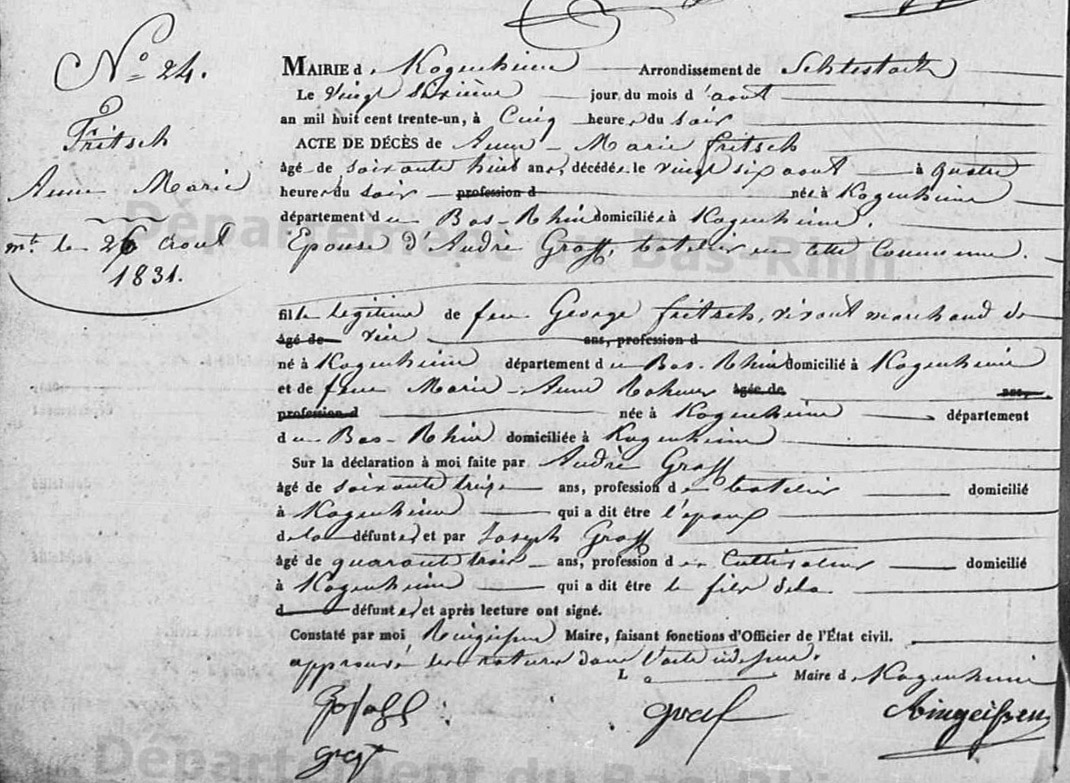 N.o 24.
Fritsch
Anne Marie
m.te le 26 aout
1831.
MAIRIE de Kogenheim Arrondissement de Schlestadt
Le vingt sixième jour du mois d'août
an mil huit cent trente-un, à Cinq heures du soir
ACTE DE DÉCÈS de Anne-Marie fritsch
âgé de soixante huit ans, décédée le vingt six aout à quatre
heures du soir profession d née à Kogenheim
département du Bas-Rhin domiciliée à Kogenheim.
Epouse d'André Graff, batelier en cette Commune.
fille légitime de feu George fritsch, vivant marchand de
âgé de ans, profession d
né à Kogenheim département du Bas-Rhin domicilié à Kogenheim
et de feue Marie-Anne âgée de ans,
profession d née à Kogenheim département
du Bas-Rhin domiciliée à Kogenheim
Sur la déclaration à moi faite par André Graff
âgé de soixante treize ans, profession de batelier domicilié
à Kogenheim qui a dit être l'epoux
de la défunte, et par Joseph Graff
âgé de quarante trois ans, profession de Cultivateur domicilié
à Kogenheim qui a dit être le fils dela
d défunte, et après lecture ont signé.
Constaté par moi Ringeissen Maire, faisant fonctions d'Officier de l'État civil.
approuvé les ratures dans l'acte
L Maire de Kogenheim
Joseph
graf
graf
Ringeissen
Département du Bas-Rhin
Département du Bas-Rhin